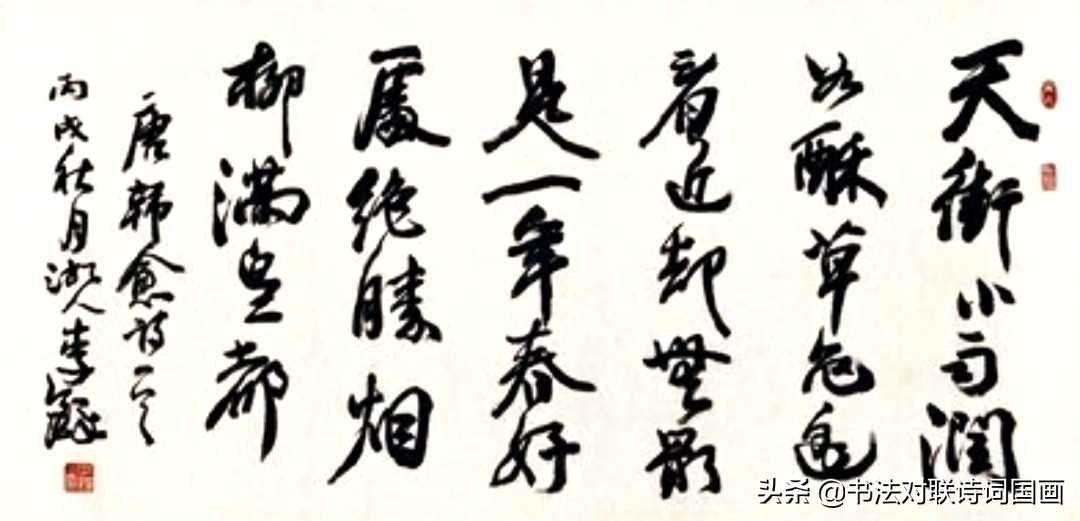 天街小雨潤
如酥草色遥
看近却無最
是一年春好
處絕勝烟
柳滿皇都
唐韓愈詩一首
丙戌秋月湘人李鐸
头条 @书法对联诗词国画